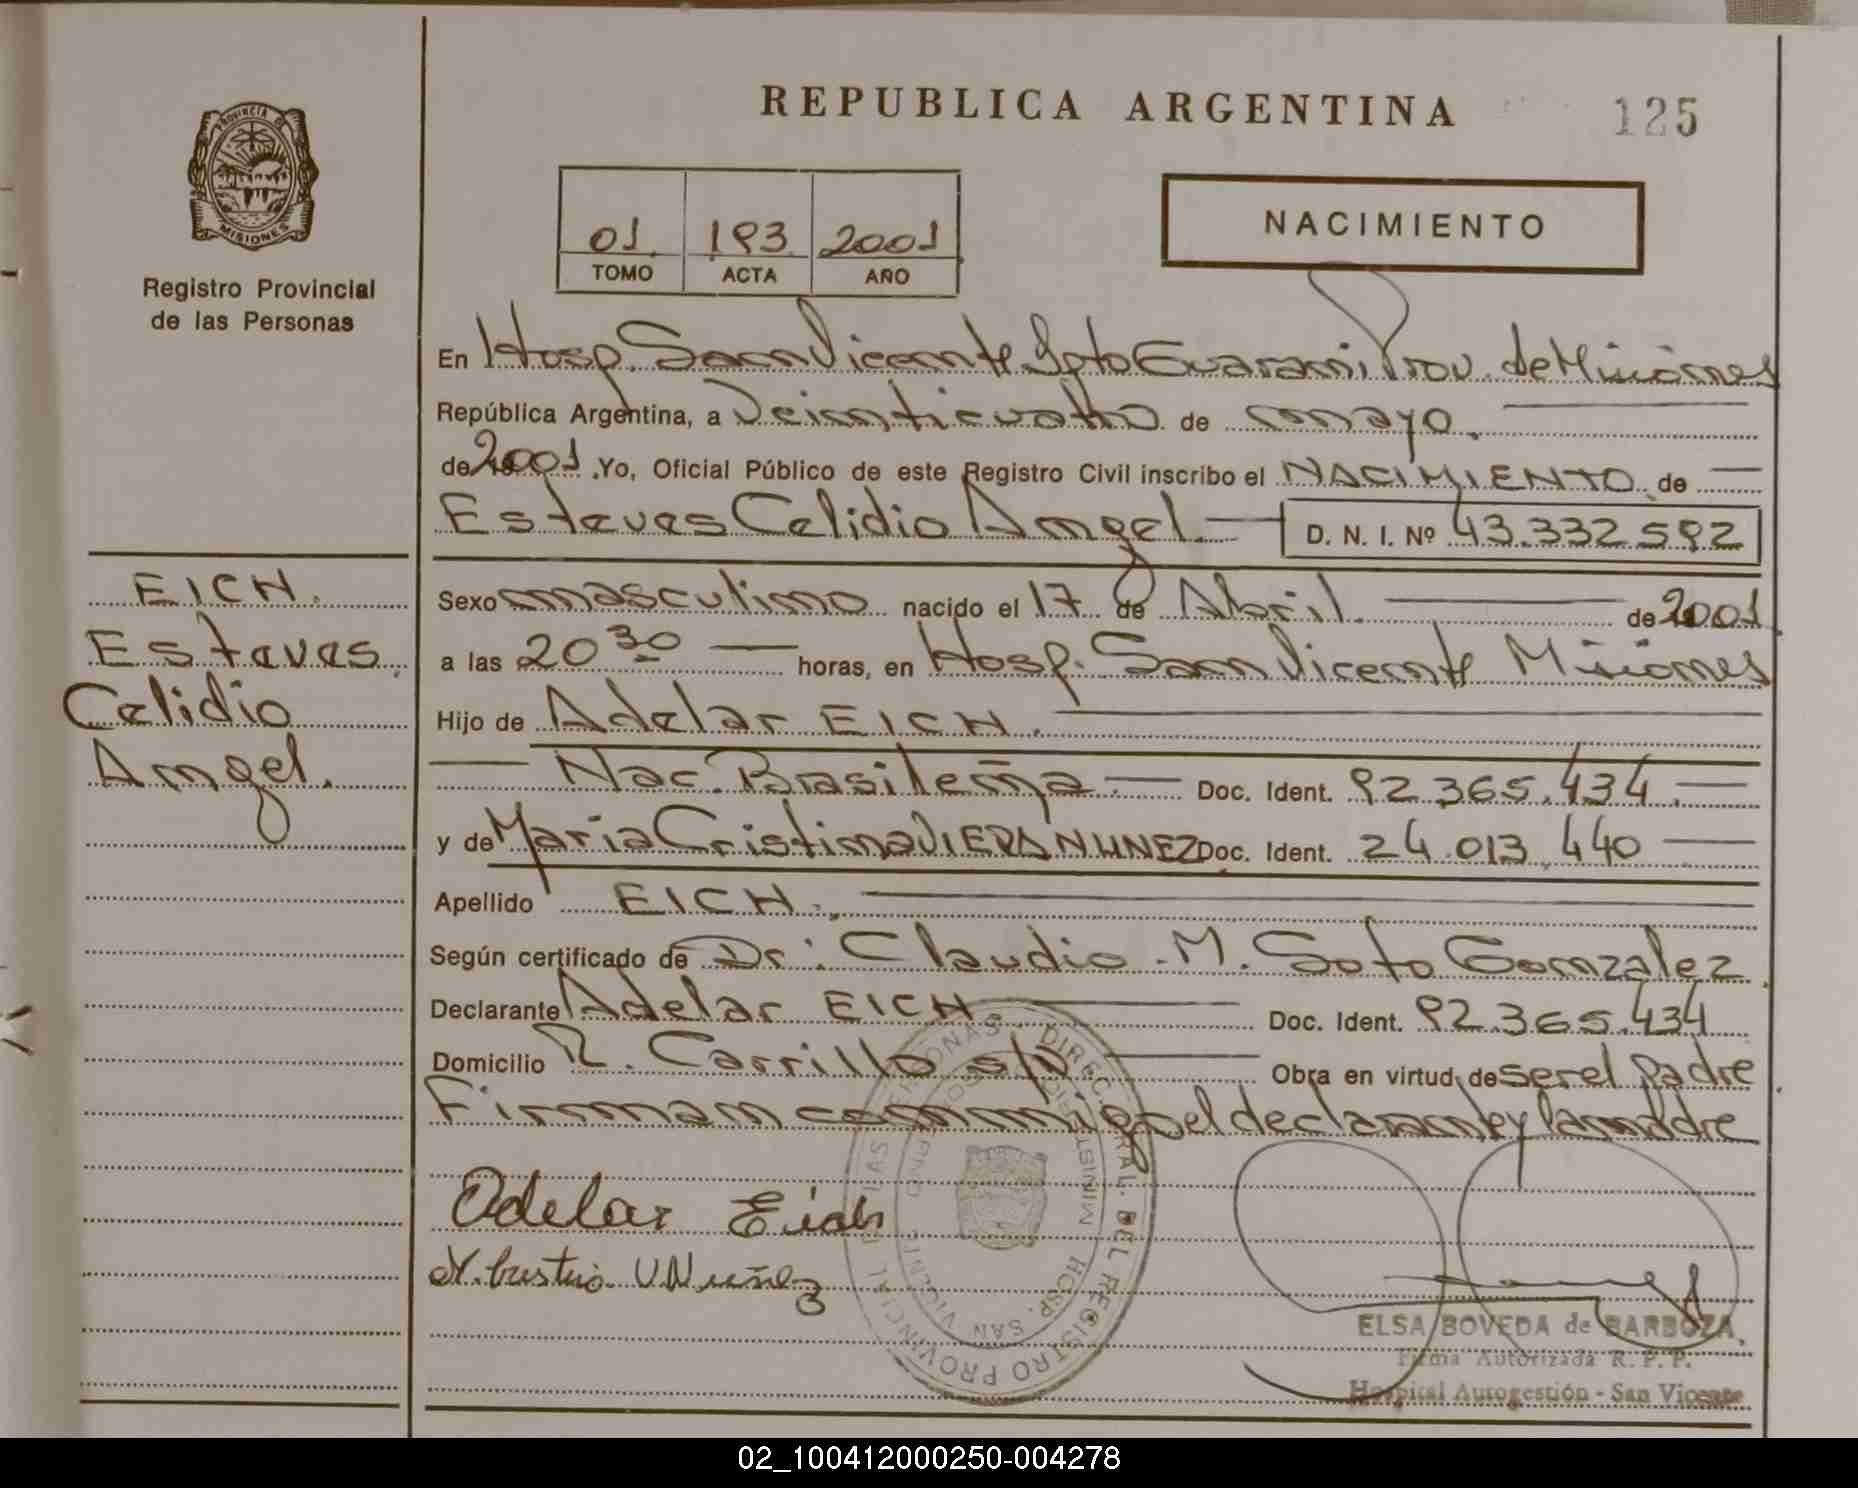 REPUBLICA ARGENTINA
125
PROVINCIA DE
MISIONES
Registro Provincial
de las Personas
01 193 2001
TOMO ACTA AÑO
NACIMIENTO
En Hosp. San Vicente Dpto Guarani Prov. de Misiones
República Argentina, a Veinticuatro de mayo.
de 2001 .Yo, Oficial Público de este Registro Civil inscribo el NACIMIENTO de
Estevas Celidio Angel. D. N. I. Nº 43.332.592
EICH.
Estevas
Celidio
Angel.
Sexo masculino nacido el 17 de Abril. de 2001
a las 20 30 horas, en Hosp. San Vicente Misiones
Hijo de Adelar EICH.
Nac. Brasileña. Doc. Ident. 92.365.434.
y de Maria Cristina VIERA NUNEZ Doc. Ident. 24.013.440
Apellido EICH.
Según certificado de Dr: Claudio M. Soto Gonzalez
Declarante Adelar EICH Doc. Ident. 92.365.434
Domicilio R. Carrillo s/n Obra en virtud de ser el padre
Firman conmigo el declarante y la madre
Adelar Eich
M. Cristina V Nuñez
DIREC. GRAL. DEL REGISTRO PROVINCIAL DE LAS PERSONAS
HOSP. SAN VICENTE
ELSA BOVEDA de BARBOZA
Firma Autorizada R. P. P.
Hospital Autogestión - San Vicente
02_100412000250-004278